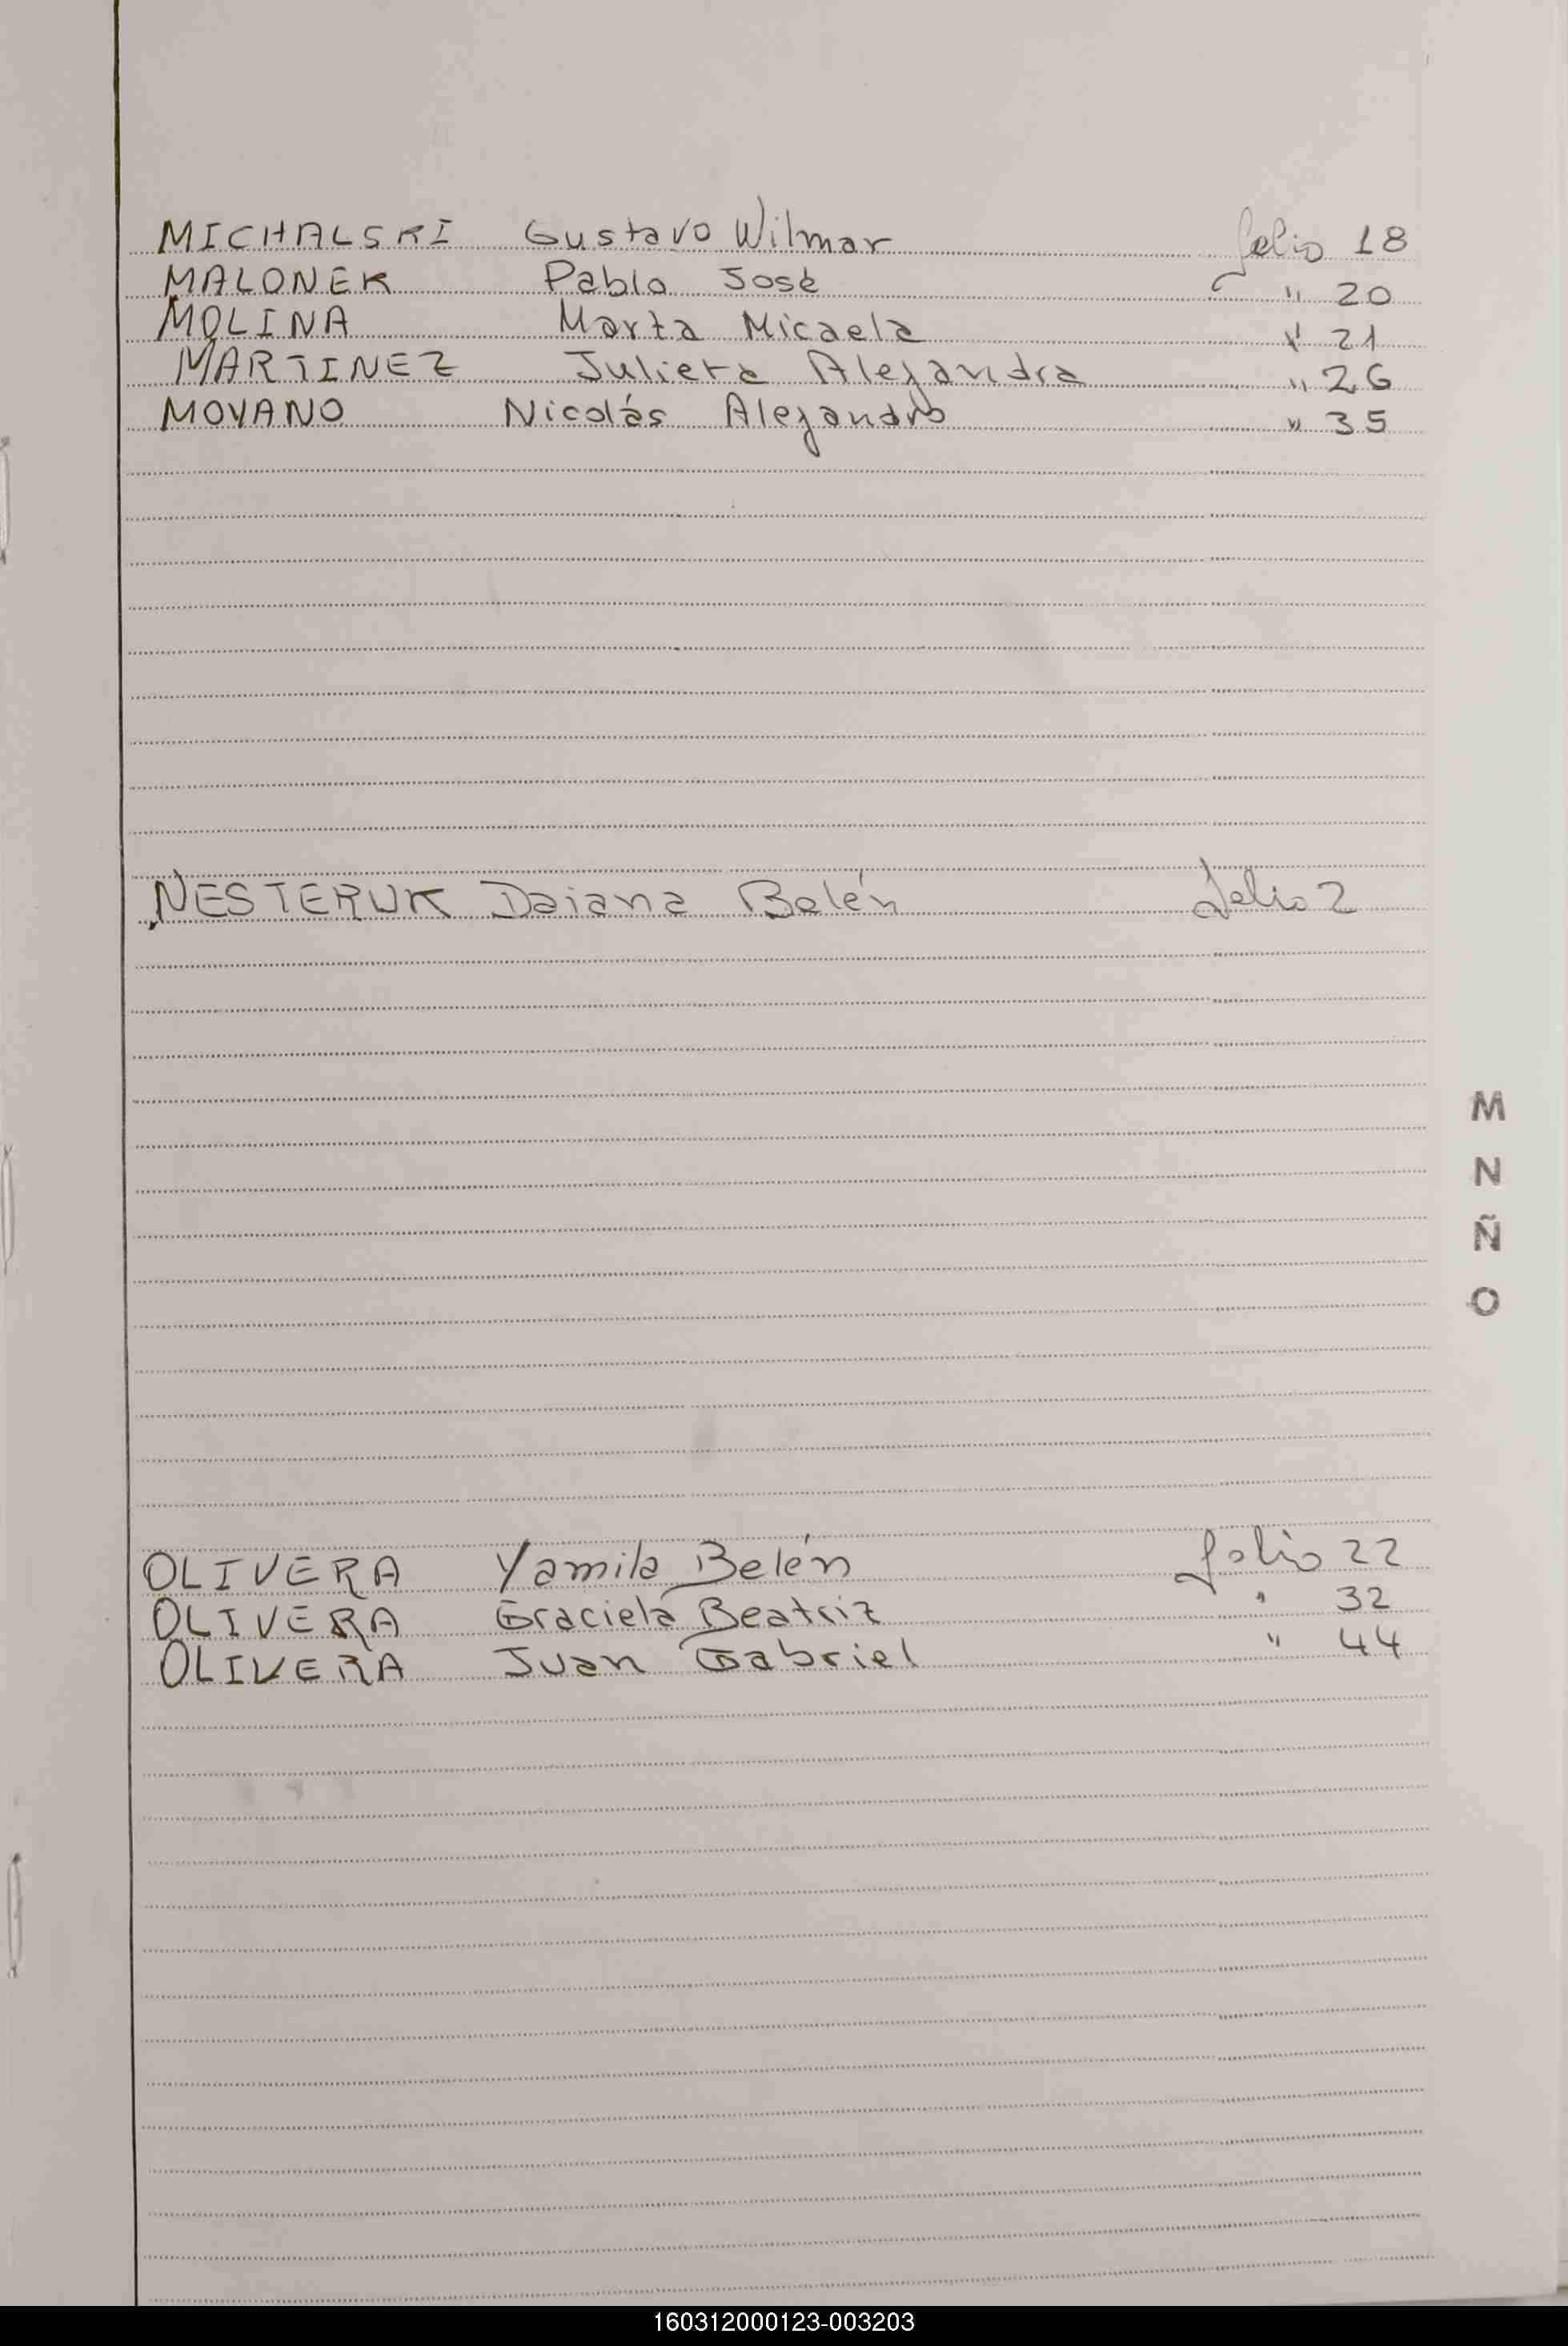 MICHALSKI Gustavo Wilmar folio 18
MALONEK Pablo José " 20
MOLINA Marta Micaela " 21
MARTINEZ Julieta Alejandra " 26
MOYANO Nicolás Alejandro " 35
NESTERUK Daiana Belén folio 2
M
N
Ñ
O
OLIVERA Yamila Belén folio 22
OLIVERA Graciela Beatriz " 32
OLIVERA Juan Gabriel " 44
160312000123-003203